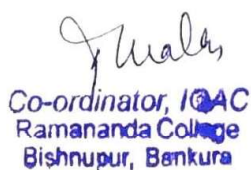 Co-ordinator, IQAC
Ramananda College
Bishnupur, Bankura